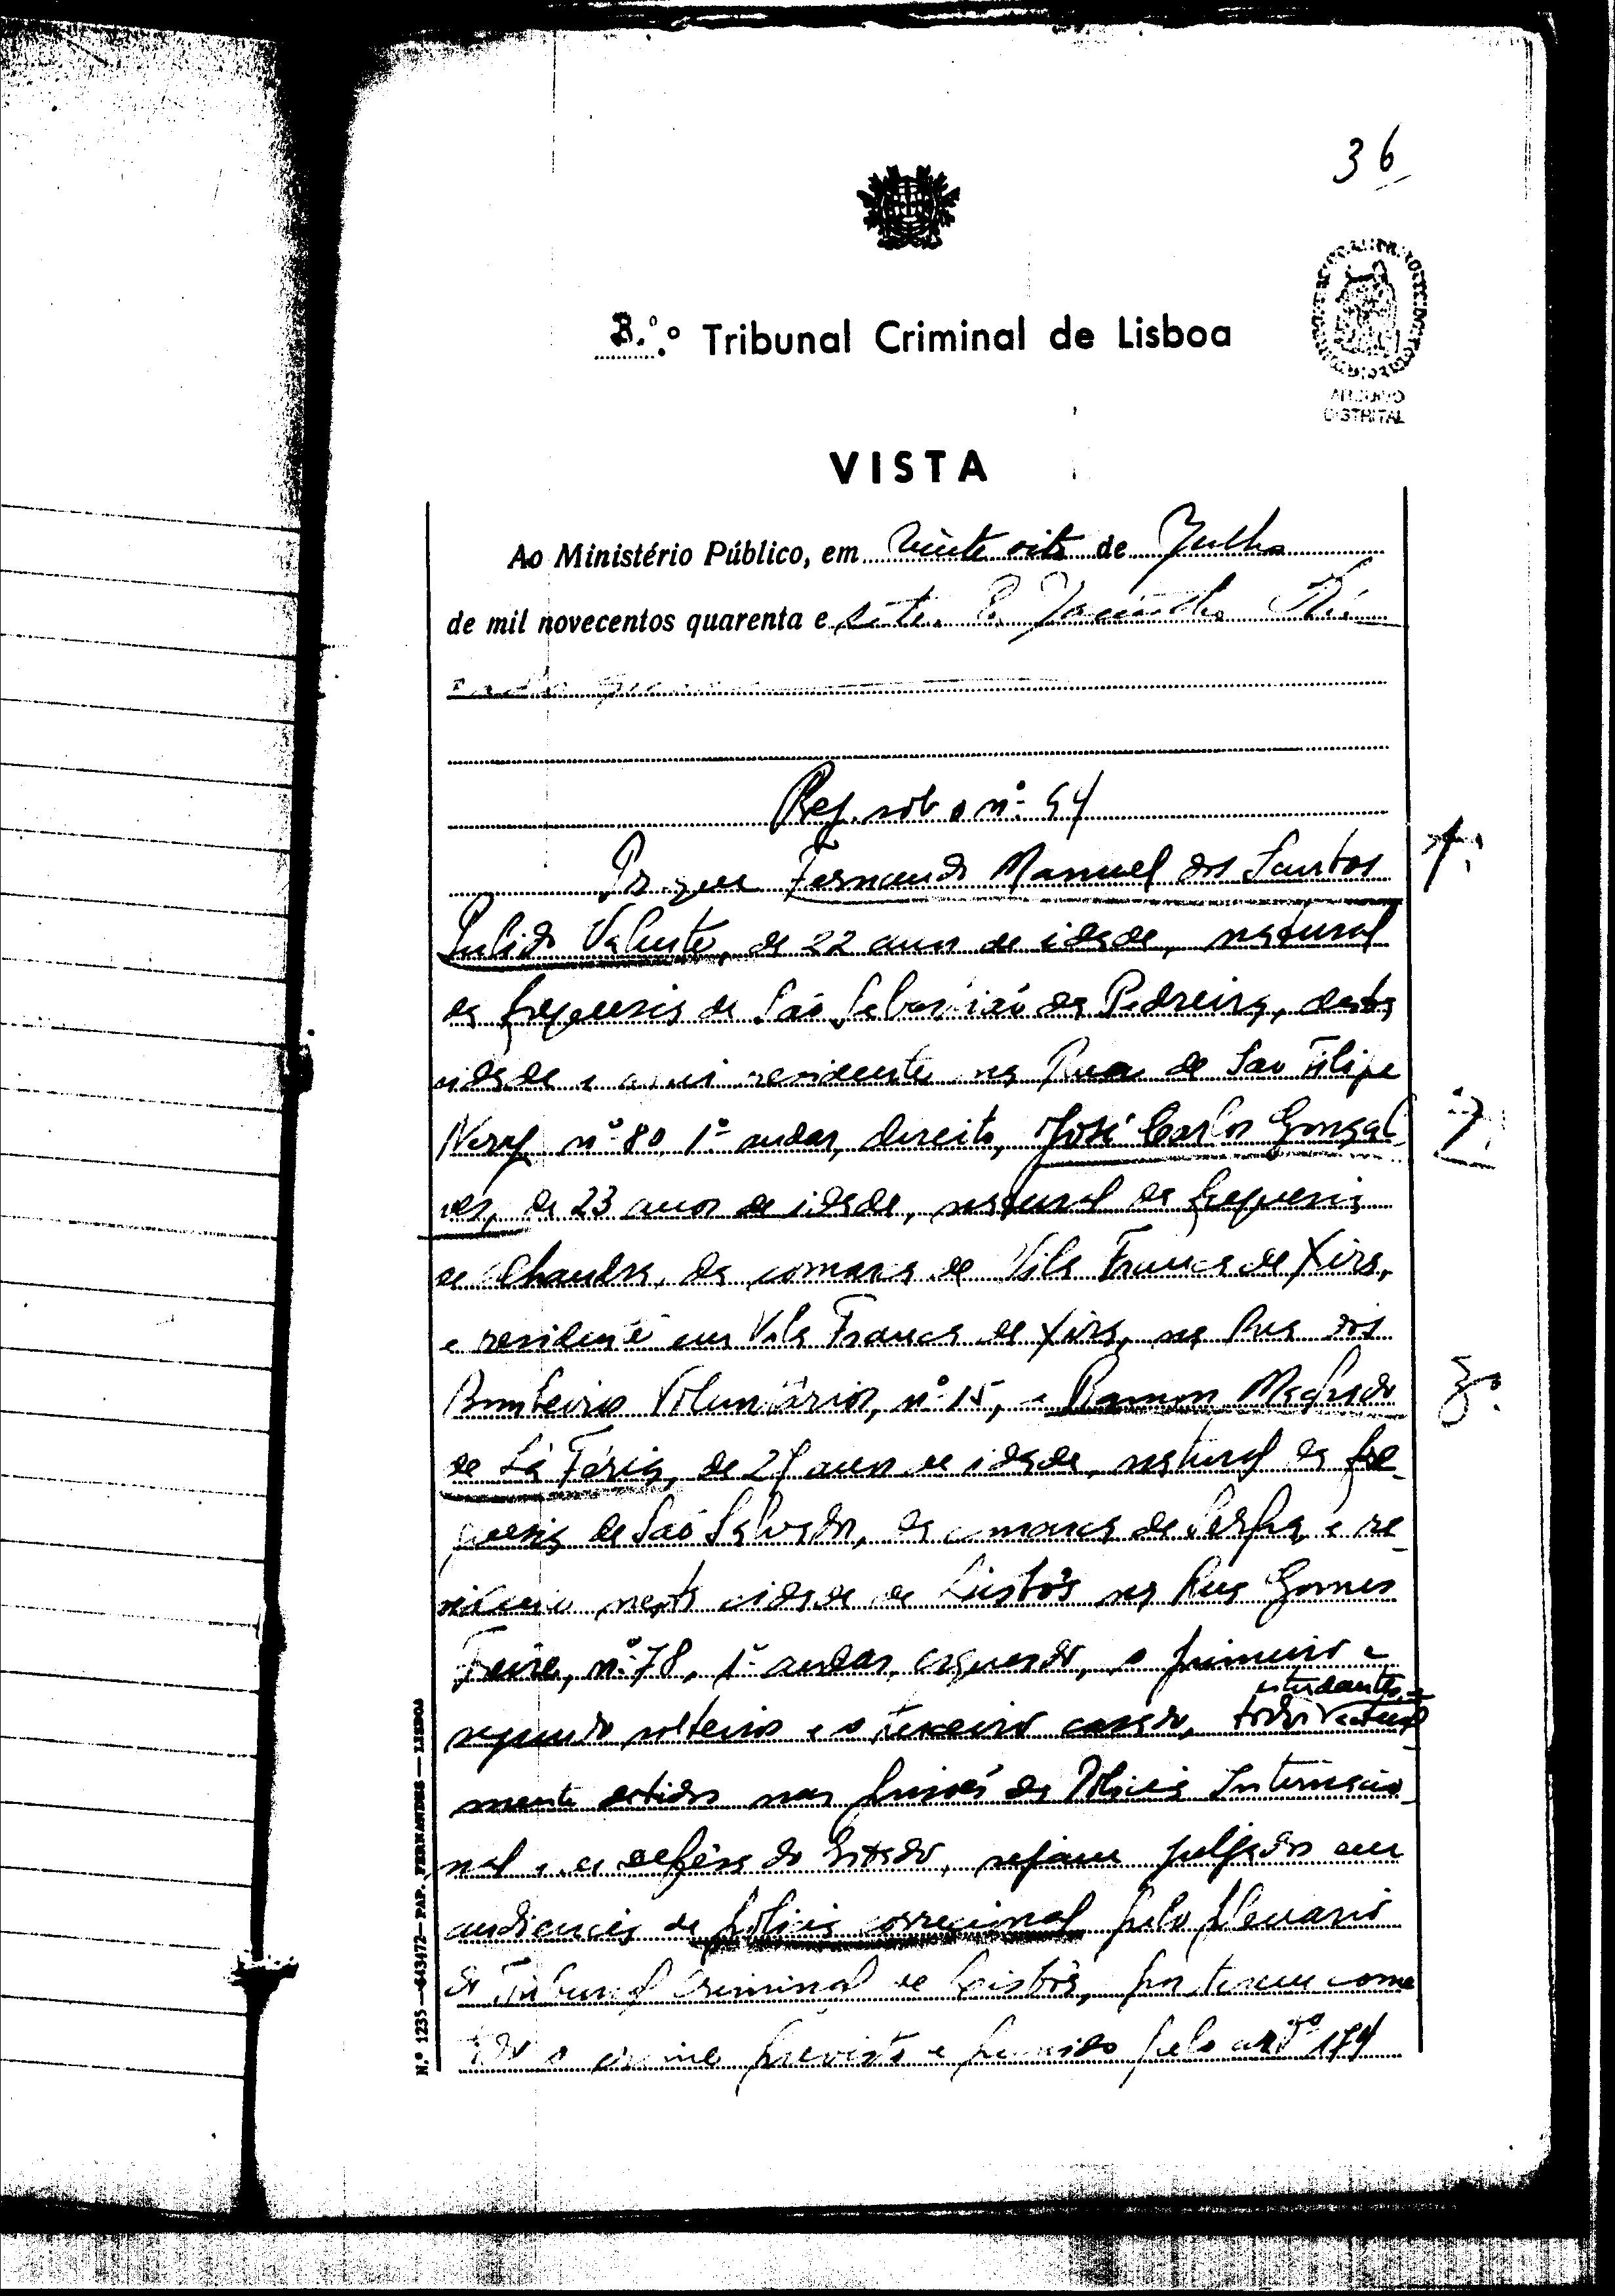 36
3.º Tribunal Criminal de Lisboa
ARQUIVO
DISTRITAL
VISTA
Ao Ministério Público, em vinte oito de Julho
de mil novecentos quarenta e sete.
Reg. sob o nº 54
1º
Fernando Manuel dos Santos
Pulido Valente, de 22 anos de idade, natural
da freguesia de São Sebastião da Pedreira, desta
cidade e aqui residente na Rua de São Filipe
Nery nº 80, 1º andar, direito, José Carlos Gonçal
2º
ves, de 23 anos de idade, natural da freguesia
de Alhandra, da comarca de Vila Franca de Xira,
e residente em Vila Franca de Xira, na Rua dos
Bombeiros Voluntários, nº 15, e Ramon Machado
3º
de La Féria, de 27 anos de idade, natural da fre-
guesia de São Salvador, da comarca de Serpa, e re-
sidente nesta cidade de Lisboa na Rua Gomes
Freire, nº 78, 1º andar, esquerdo, o primeiro e
segundo solteiros e o terceiro casado, todos estudantes e actual-
mente detidos nas prisões da Polícia Internacio-
nal e de defesa do Estado, sejam julgados em
audiencia de polícia correcional pelo Plenario
do Tribunal Criminal de Lisboa, por terem come
tido o crime previsto e punido pelo artº 174
N.º 1235—643472—PAP. FERNANDES—LISBOA